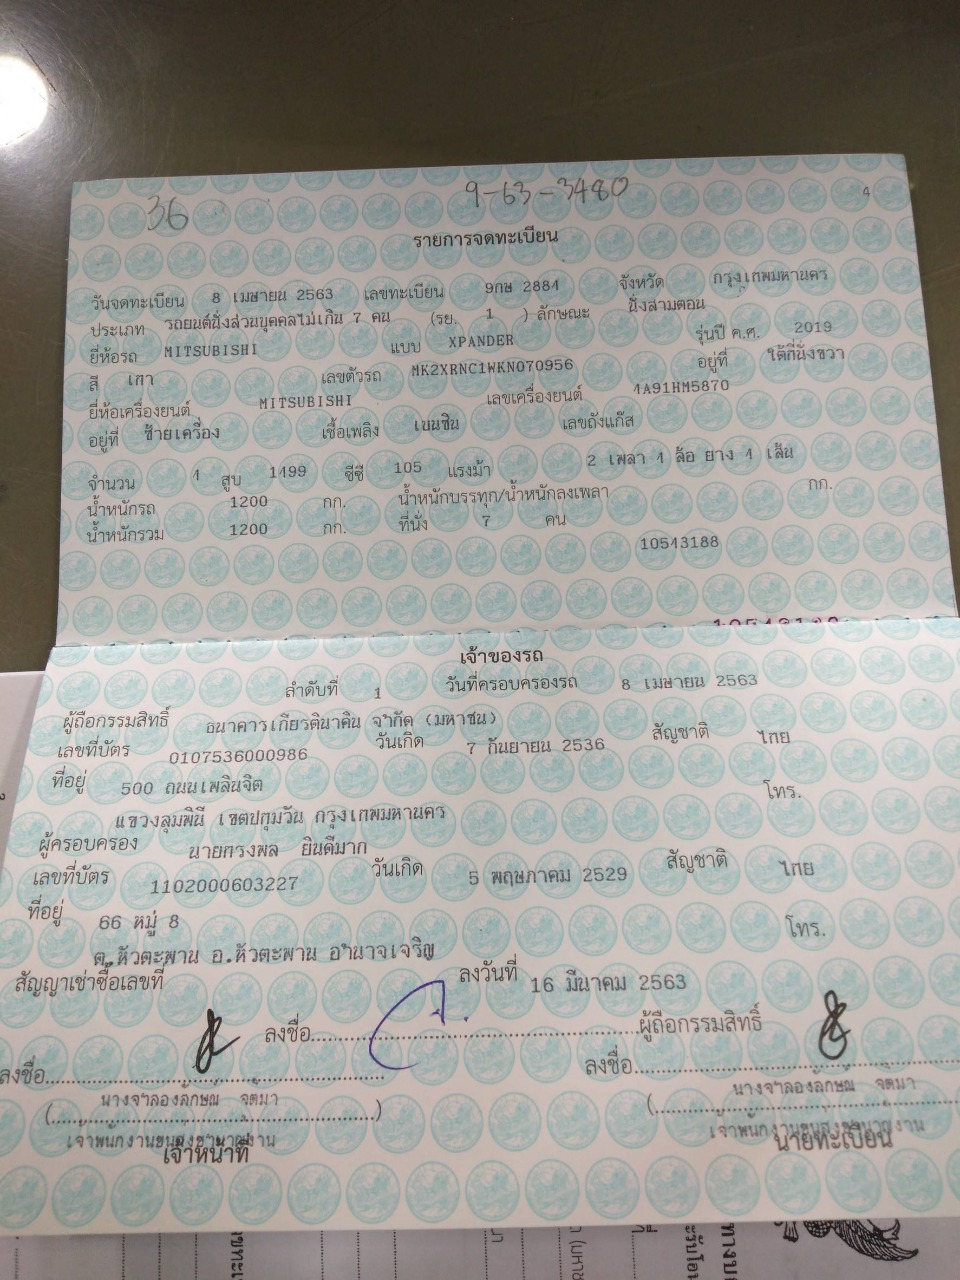 36 9-63-3480 4
รายการจดทะเบียน
วันจดทะเบียน 8 เมษายน 2563 เลขทะเบียน 9กษ 2884 จังหวัด กรุงเทพมหานคร
ประเภท รถยนต์นั่งส่วนบุคคลไม่เกิน 7 คน (รย. 1 ) ลักษณะ นั่งสามตอน
ยี่ห้อรถ MITSUBISHI แบบ XPANDER รุ่นปี ค.ศ. 2019
สี เทา เลขตัวรถ MK2XRNC1WKN070956 อยู่ที่ ใต้ที่นั่งขวา
ยี่ห้อเครื่องยนต์ MITSUBISHI เลขเครื่องยนต์ 4A91HM5870
อยู่ที่ ซ้ายเครื่อง เชื้อเพลิง เบนซิน เลขถังแก๊ส
จำนวน 4 สูบ 1499 ซีซี 105 แรงม้า 2 เพลา 4 ล้อ ยาง 4 เส้น
น้ำหนักรถ 1200 กก. น้ำหนักบรรทุก/น้ำหนักลงเพลา กก.
น้ำหนักรวม 1200 กก. ที่นั่ง 7 คน
10543188
เจ้าของรถ
ลำดับที่ 1 วันที่ครอบครองรถ 8 เมษายน 2563
ผู้ถือกรรมสิทธิ์ ธนาคารเกียรตินาคิน จำกัด (มหาชน)
เลขที่บัตร 0107536000986 วันเกิด 7 กันยายน 2536 สัญชาติ ไทย
ที่อยู่ 500 ถนนเพลินจิต โทร.
แขวงลุมพินี เขตปทุมวัน กรุงเทพมหานคร
ผู้ครอบครอง นายทรงพล ยินดีมาก
เลขที่บัตร 1102000603227 วันเกิด 5 พฤษภาคม 2529 สัญชาติ ไทย
ที่อยู่ 66 หมู่ 8 โทร.
ต.หัวตะพาน อ.หัวตะพาน อำนาจเจริญ
สัญญาเช่าซื้อเลขที่ ลงวันที่ 16 มีนาคม 2563
ลงชื่อ ผู้ถือกรรมสิทธิ์
ลงชื่อ ลงชื่อ
นางจำลองลักษณ์ จุ้ตมา นางจำลองลักษณ์ จุ้ตมา
เจ้าพนักงานขนส่งชำนาญงาน เจ้าพนักงานขนส่งชำนาญงาน
เจ้าหน้าที่ นายทะเบียน